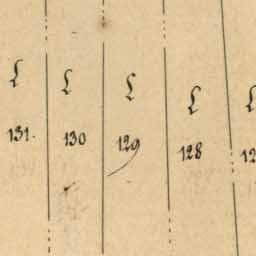 L L L L L
131. 130 129 128 12